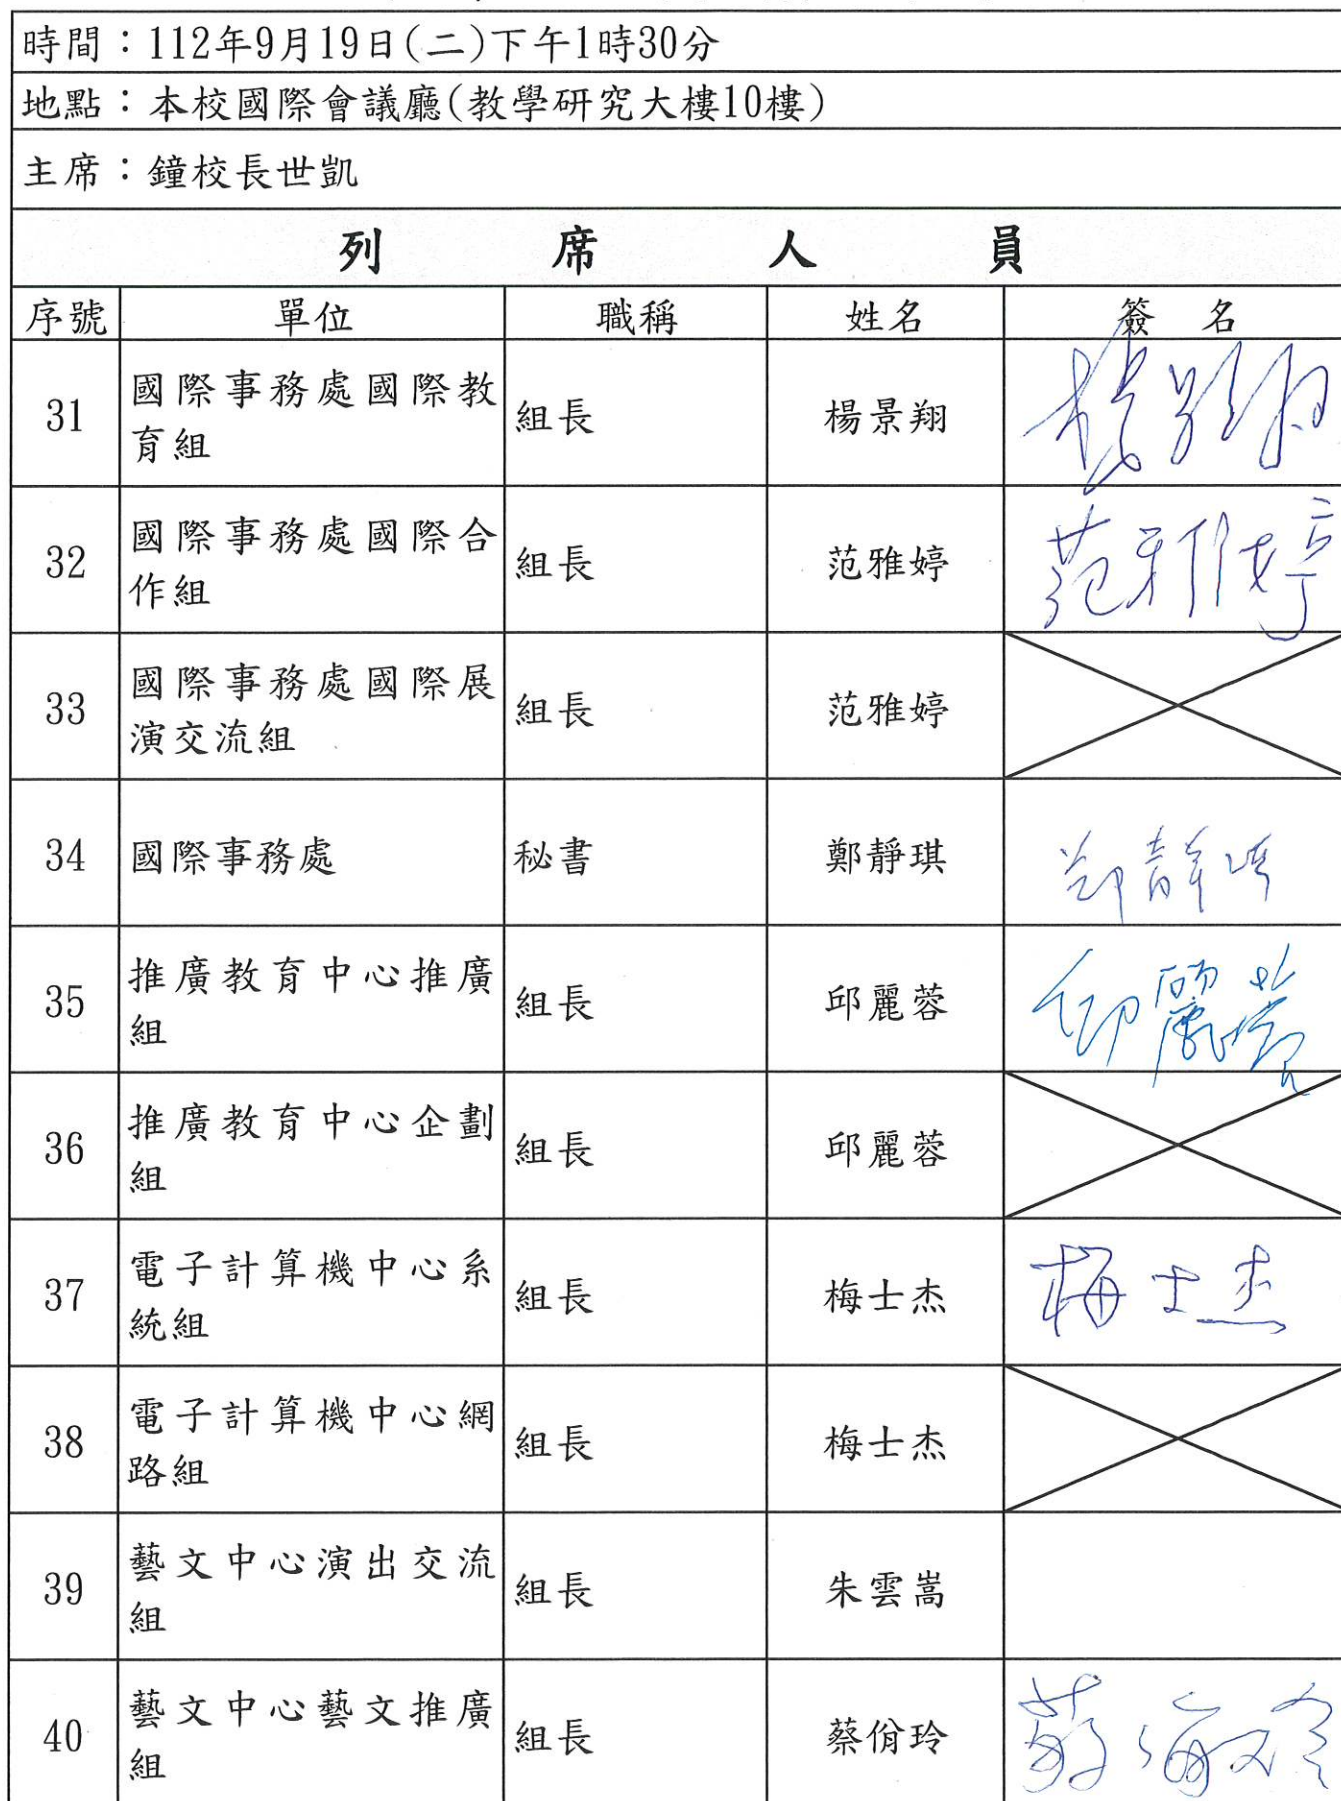 時間：112年9月19日(二)下午1時30分
地點：本校國際會議廳(教學研究大樓10樓)
主席：鐘校長世凱
列席人員
序號 單位 職稱 姓名 簽名
31 國際事務處國際教育組 組長 楊景翔
32 國際事務處國際合作組 組長 范雅婷 范雅婷
33 國際事務處國際展演交流組 組長 范雅婷
34 國際事務處 秘書 鄭靜琪
35 推廣教育中心推廣組 組長 邱麗蓉 邱麗蓉
36 推廣教育中心企劃組 組長 邱麗蓉
37 電子計算機中心系統組 組長 梅士杰 梅士杰
38 電子計算機中心網路組 組長 梅士杰
39 藝文中心演出交流組 組長 朱雲嵩
40 藝文中心藝文推廣組 組長 蔡佾玲